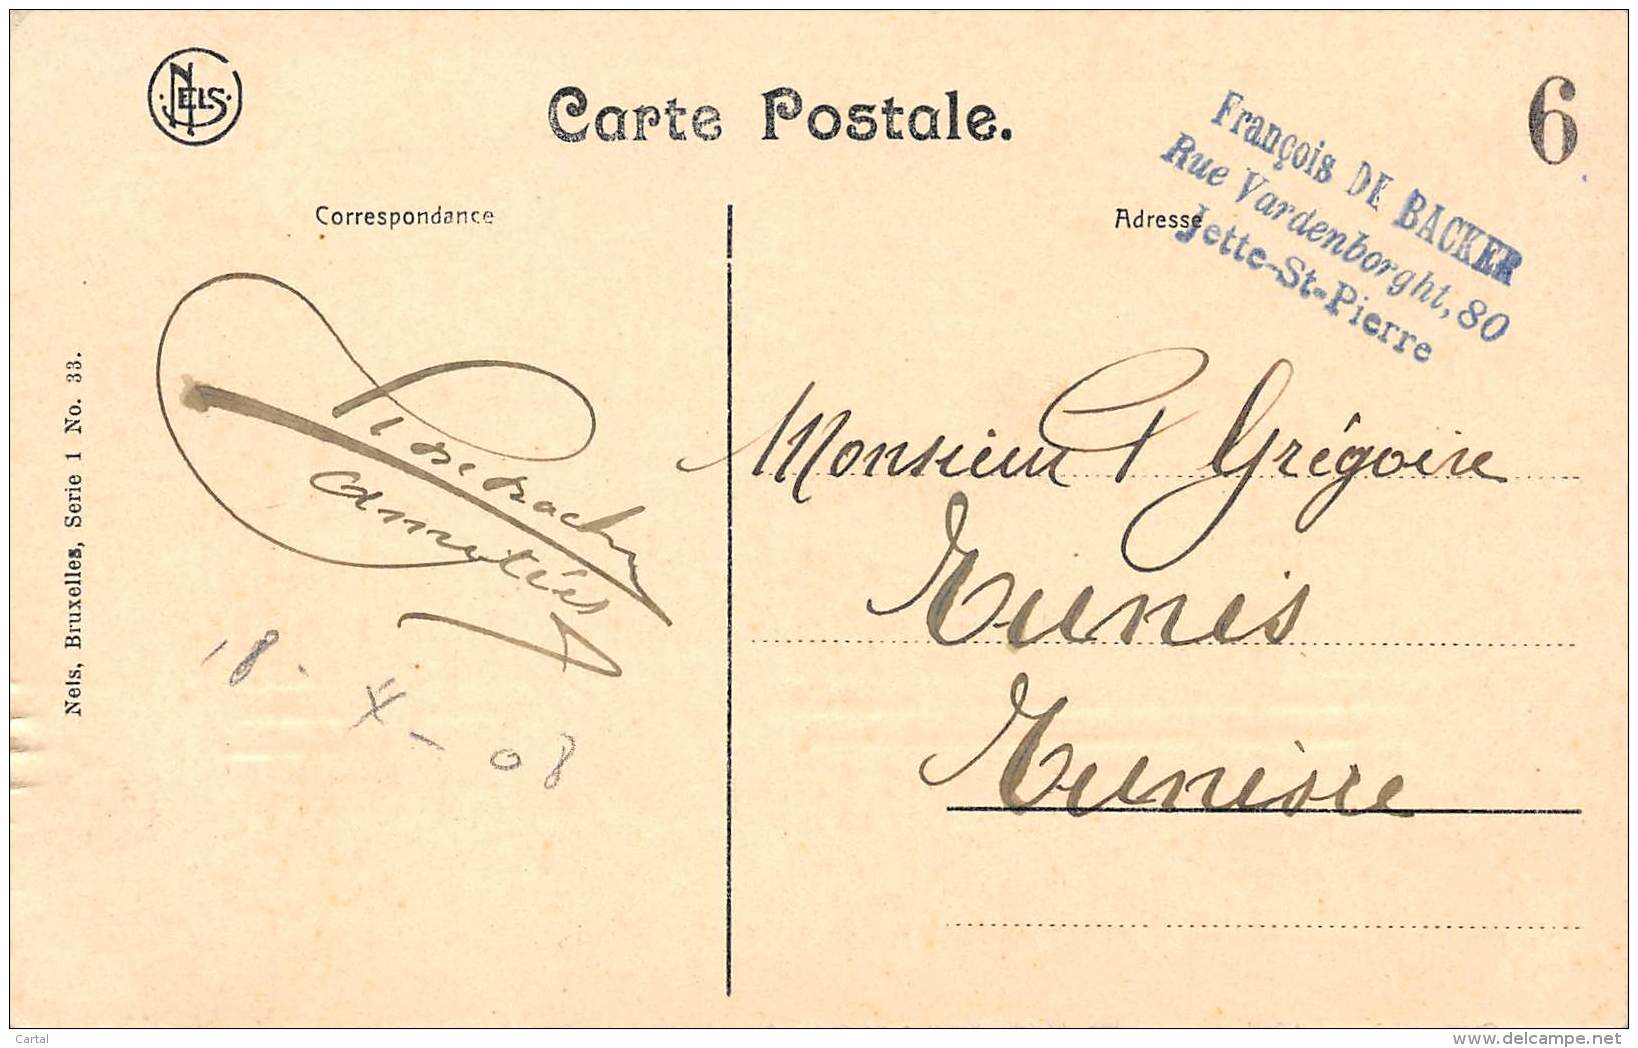 NELS
Carte Postale.
6
François DE BACKER
Rue Vardenborght, 80
Jette-St-Pierre
Correspondance
Adresse
amitiés
18 - X - 08
Monsieur Grégoire
Tunis
Tunisie
Nels, Bruxelles, Serie 1 No. 33.
Cartal
delcampe.net